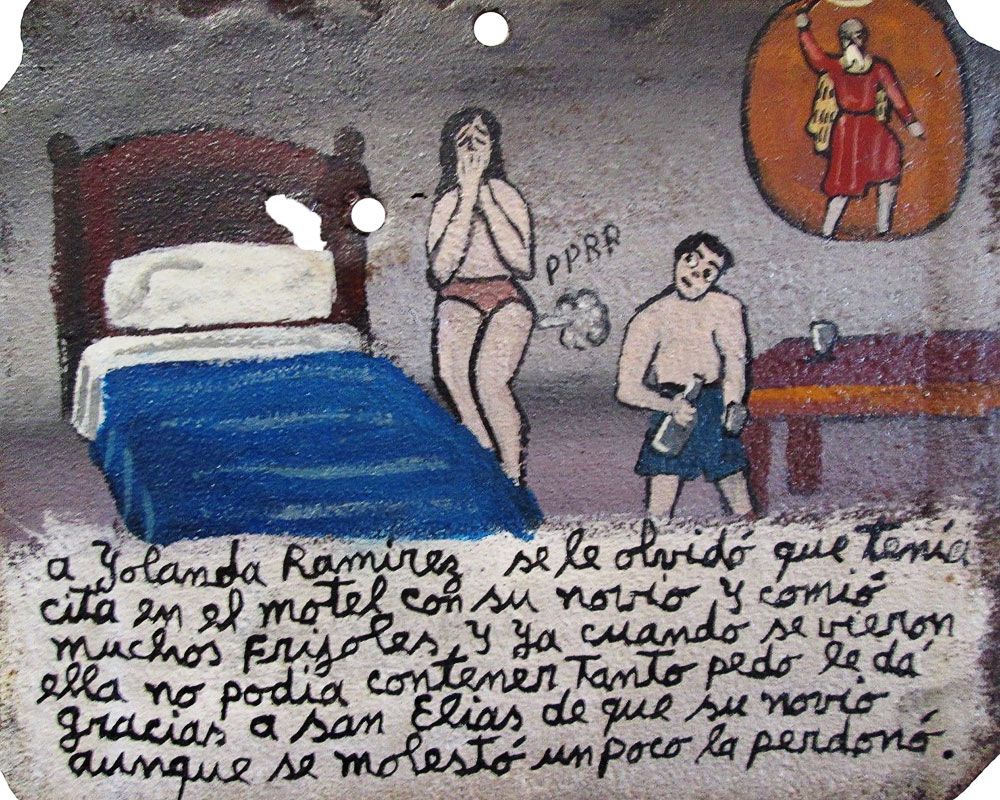 PPRR
a Yolanda Ramirez se le olvidó que tenía
cita en el motel con su novio y comió
muchos Frijoles, y ya cuando se vieron
ella no podía contener tanto pedo le dá
gracias a San Elias de que su novio
aunque se molestó un poco la perdonó.